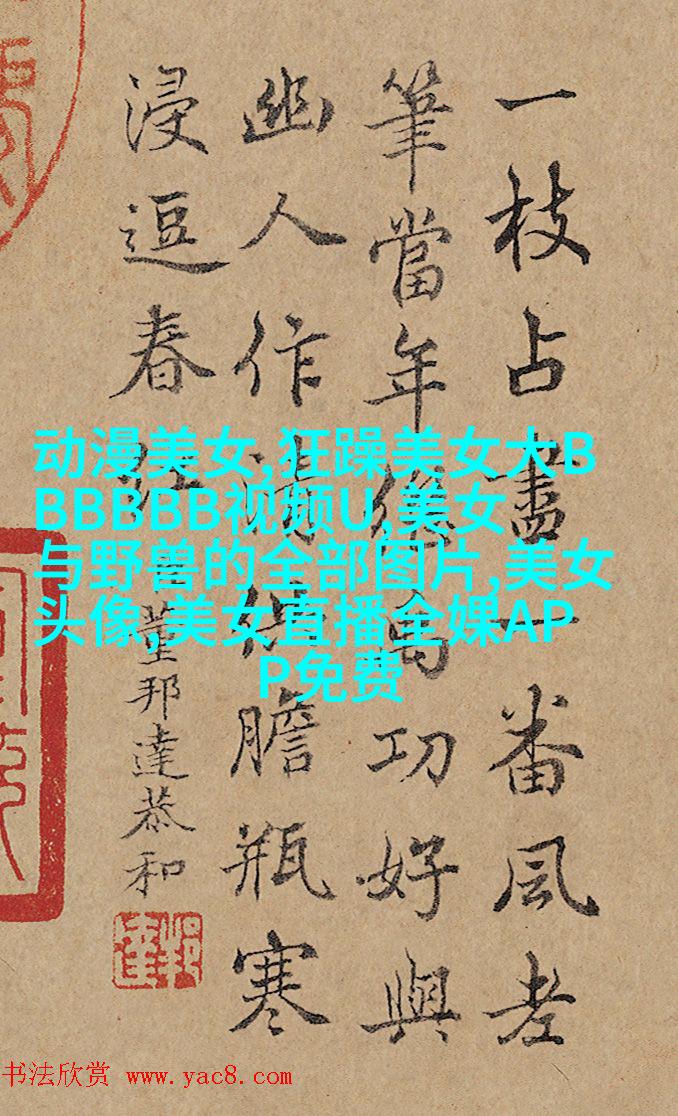 一枝占盡一番風老
筆當年功好與
幽人作清供膽瓶寒
浸逗春紅
董邦達恭和
动漫美女,狂躁美女大B
BBBBBB视频U,美女
与野兽的全部图片,美女
头像,美女直播全婐AP
P免费
书法欣赏 www.yac8.com